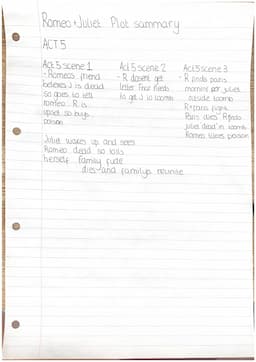 Romeo + Juliet Plot summary
ACT 5
Act 5 scene 1
- Romeos friend
believes J is dead
so goes to tell
romeo. R is
upset so buys
poison
Act 5 scene 2
- R doesent get
letter Friar needs
to get J
Act 5 scene 3
- R finds paris
morning for juliet
outside
R + paris fight
Paris dies R finds
juliet dead in
Romeo takes poison
Juliet wakes up and sees
Romeo dead so kills
herself family
dies and familys reunite